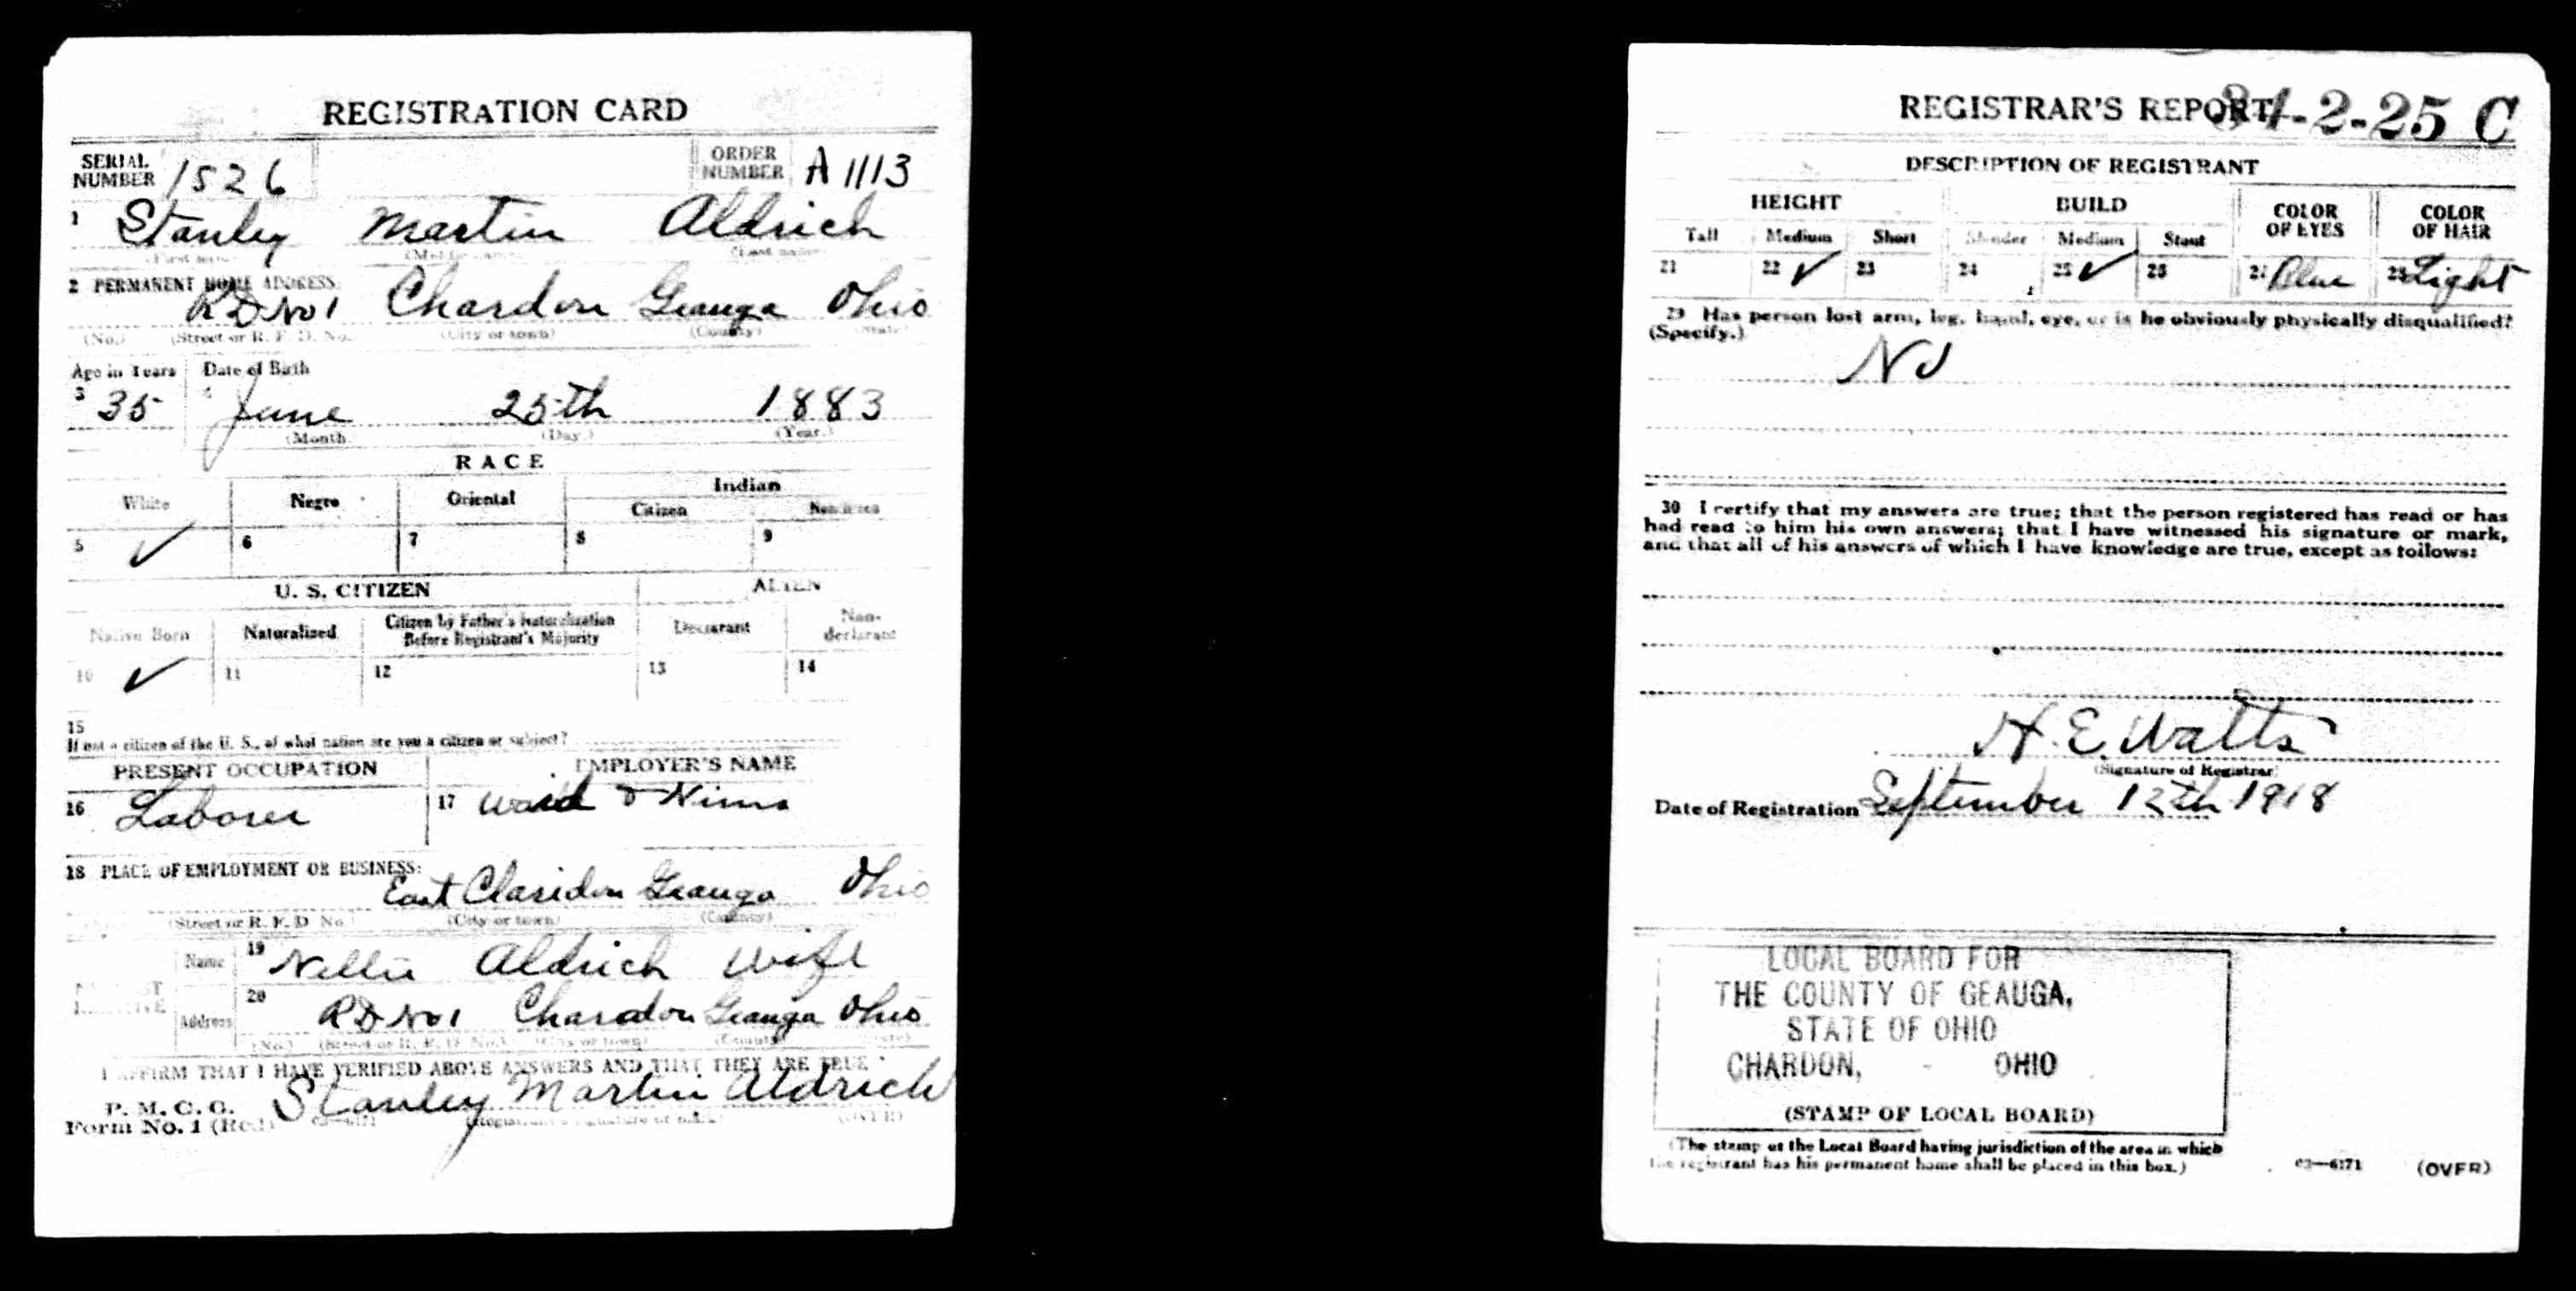 REGISTRATION CARD
SERIAL NUMBER 1526 ORDER NUMBER A 1113
1 Stanley Martin Aldrich
(First name) (Middle name) (Last name)
2 PERMANENT HOME ADDRESS:
RD No 1 Chardon Geauga Ohio
(No.) (Street or R. F. D. No.) (City or town) (County) (State)
Age in Years Date of Birth
3 35 4 June 25th 1883
(Month.) (Day.) (Year.)
RACE
White Negro Oriental Indian
Citizen Noncitizen
5 ✓ 6 7 8 9
U. S. CITIZEN ALIEN
Native Born Naturalized Citizen by Father's Naturalization Before Registrant's Majority Declarant Non-declarant
10 ✓ 11 12 13 14
15
If not a citizen of the U. S., of what nation are you a citizen or subject?
PRESENT OCCUPATION EMPLOYER'S NAME
16 Laborer 17 Waid & Nims
18 PLACE OF EMPLOYMENT OR BUSINESS:
East Claridon Geauga Ohio
(Street or R. F. D. No.) (City or town) (County)
Name 19 Nellie Aldrich Wife
Address 20 RD No 1 Chardon Geauga Ohio
(No.) (Street or R. F. D. No.) (City or town) (County) (State)
I AFFIRM THAT I HAVE VERIFIED ABOVE ANSWERS AND THAT THEY ARE TRUE
P. M. G. O.
Form No. 1 (Red) Stanley Martin Aldrich
03—6171 (Registrant's signature or mark) (OVER)
REGISTRAR'S REPORT 34-2-25 C
DESCRIPTION OF REGISTRANT
HEIGHT BUILD COLOR OF EYES COLOR OF HAIR
Tall Medium Short Slender Medium Stout
21 22 ✓ 23 24 25 ✓ 26 27 Blue 28 Light
29 Has person lost arm, leg, hand, eye, or is he obviously physically disqualified?
(Specify.)
No
30 I certify that my answers are true; that the person registered has read or has
had read to him his own answers; that I have witnessed his signature or mark,
and that all of his answers of which I have knowledge are true, except as follows:
H. E. Watts
(Signature of Registrar)
Date of Registration September 12th 1918
LOCAL BOARD FOR
THE COUNTY OF GEAUGA,
STATE OF OHIO
CHARDON, - OHIO
(STAMP OF LOCAL BOARD)
(The stamp of the Local Board having jurisdiction of the area in which
the registrant has his permanent home shall be placed in this box.)
03—6171 (OVER)